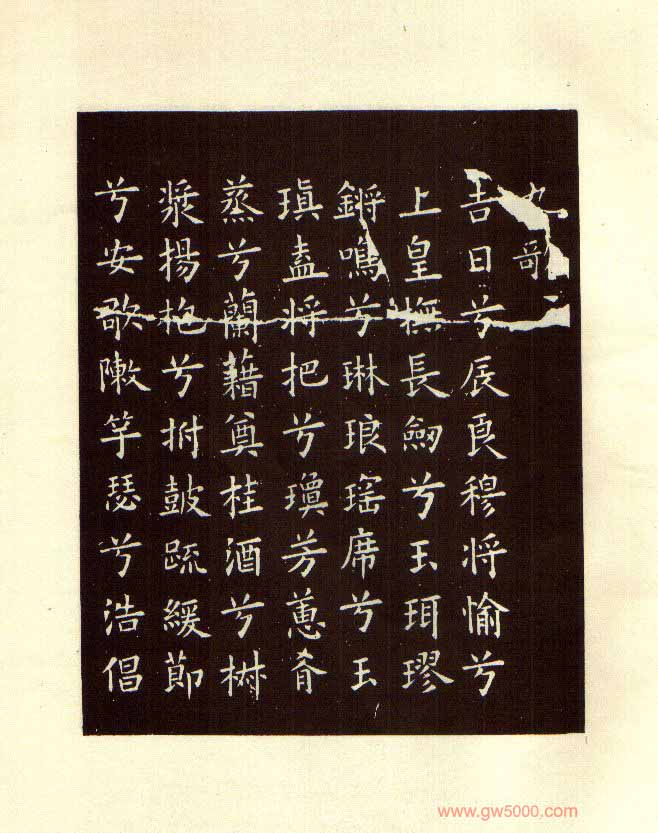 九歌
吉日兮辰良穆将愉兮
上皇撫長劒兮玉珥璆
鏘鳴兮琳琅瑶席兮玉
瑱盍将把兮瓊芳蕙肴
蒸兮蘭藉奠桂酒兮椒
漿揚枹兮拊鼓疏緩節
兮安歌陳竽瑟兮浩倡
www.gw5000.com